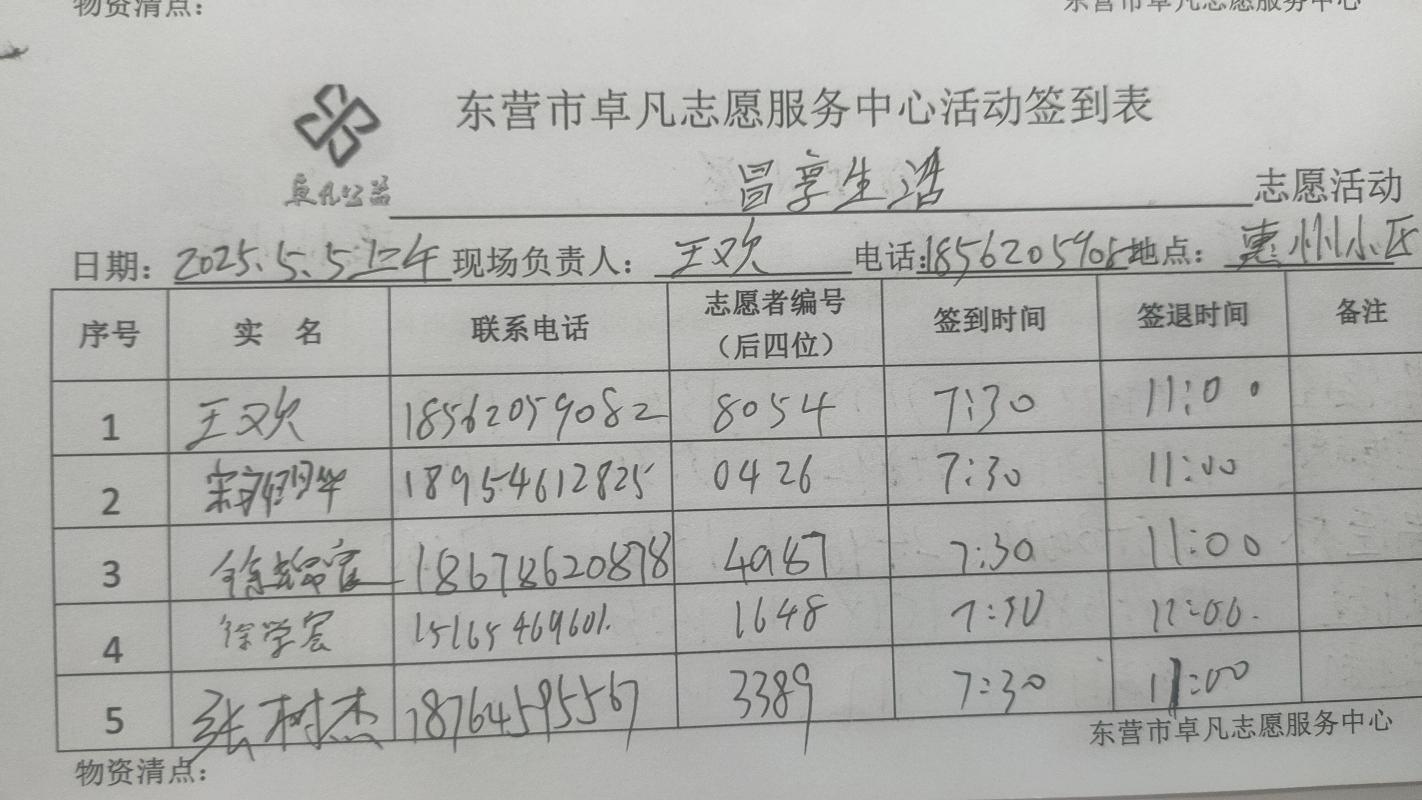 物资清点：
东营市卓凡志愿服务中心
东营市卓凡志愿服务中心活动签到表
卓凡公益
昌享生活 志愿活动
日期：2025.5.5上午 现场负责人：王欢 电话：18562059082 地点：惠州小区
序号 实 名 联系电话 志愿者编号（后四位） 签到时间 签退时间 备注
1 王欢 18562059082 8054 7:30 11:00
2 18954612825 0426 7:30 11:00
3 18678620878 4987 7:30 11:00
4 徐学宏 15165469601. 1648 7:30 11:00.
5 张树杰 18764595567 3389 7:30 11:00
东营市卓凡志愿服务中心
物资清点：